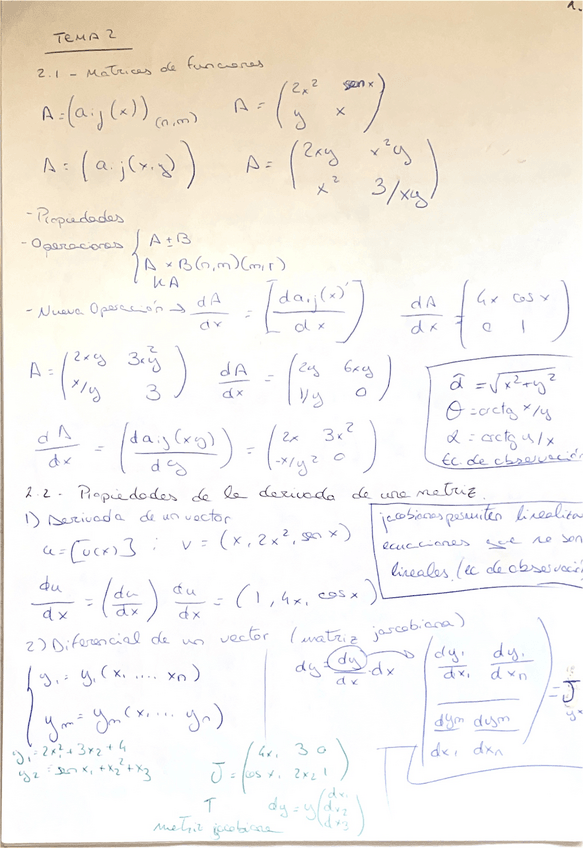 1.
TEMA 2
2.1 - Matrices de funciones
A = (aij(x))(n,m)   A = (2x² sen x / y x)
A = (aij(x,y))   A = (2xy x²y / x² 3/xy)
- Propiedades
- Operaciones { A ± B
A × B (n,m)(m,r)
KA
- Nueva Operación → dA/dx = [daij(x)/dx]   dA/dx = (4x cos x / 0 1)
A = (2xy 3x²y / x/y 3)   dA/dx = (2y 6xy / 1/y 0)
d = √x²+y²
θ = arctg x/y
α = arctg y/x
Ec de observación
dA/dx = (daij(xy)/dy) = (2x 3x² / -x/y² 0)
2.2 - Propiedades de la derivada de una matriz.
1) Derivada de un vector
u = [u(x)] : v = (x, 2x², sen x)
jacobianas permiten linealiza
ecuaciones que no son
lineales. (ec de observación
du/dx = (du/dx)   du/dx = (1, 4x, cos x)
2) Diferencial de un vector (matriz jacobiana)
{ y₁ = y₁(x₁ .... xn)
ym = ym(x₁ .... yn)
dy = dy/dx · dx → (dy₁/dx₁ dy₁/dxn / dym/dx₁ dym/dxn) = J yx
y₁ = 2x₁² + 3x₂ + 4
y₂ = sen x₁ + x₂² + x₃
J = (4x₁ 3 0 / cos x₁ 2x₂ 1)
dy = y (dx₁ / dx₂ / dx₃)
matriz jacobiana